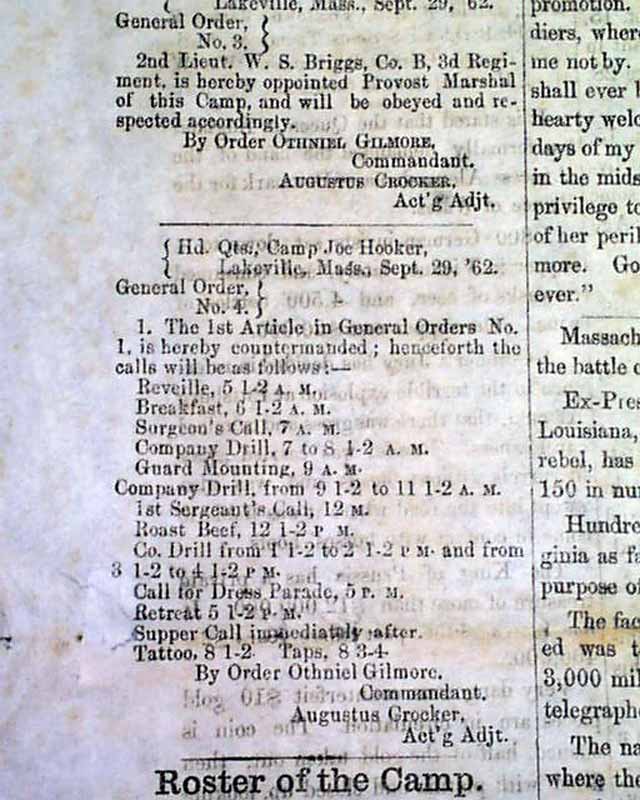 Lakeville, Mass., Sept. 29, '62.
General Order,
No. 3.
2nd Lieut. W. S. Briggs, Co. B, 3d Regi-
ment, is hereby appointed Provost Marshal
of this Camp, and will be obeyed and re-
spected accordingly.
By Order OTHNIEL GILMORE,
Commandant.
AUGUSTUS CROCKER,
Act'g Adjt.
Hd. Qts., Camp Joe Hooker,
Lakeville, Mass., Sept. 29, '62.
General Order,
No. 4.
1. The 1st Article in General Orders No.
1, is hereby countermanded; henceforth the
calls will be as follows:—
Reveille, 5 1-2 A. M.
Breakfast, 6 1-2 A. M.
Surgeon's Call, 7 A. M.
Company Drill, 7 to 8 1-2 A. M.
Guard Mounting, 9 A. M.
Company Drill, from 9 1-2 to 11 1-2 A. M.
1st Sergeant's Call, 12 M.
Roast Beef, 12 1-2 P M.
Co. Drill from 1 1-2 to 2 1-2 P M. and from
3 1-2 to 4 1-2 P M.
Call for Dress Parade, 5 P. M.
Retreat 5 1-2 P. M.
Supper Call immediately after.
Tattoo, 8 1-2 Taps, 8 3-4
By Order Othniel Gilmore.
Commandant.
Augustus Crocker,
Act'g Adjt.
Roster of the Camp.
promotion.
diers, wher
me not by.
shall ever
hearty welc
days of my
in the mids
privilege to
of her peril
more. Go
ever."
Massach
the battle
Ex-Pres
Louisiana,
rebel, has
150 in nu
Hundre
ginia as fa
purpose of
The fac
ed was t
3,000 mil
telegraph
The na
where the